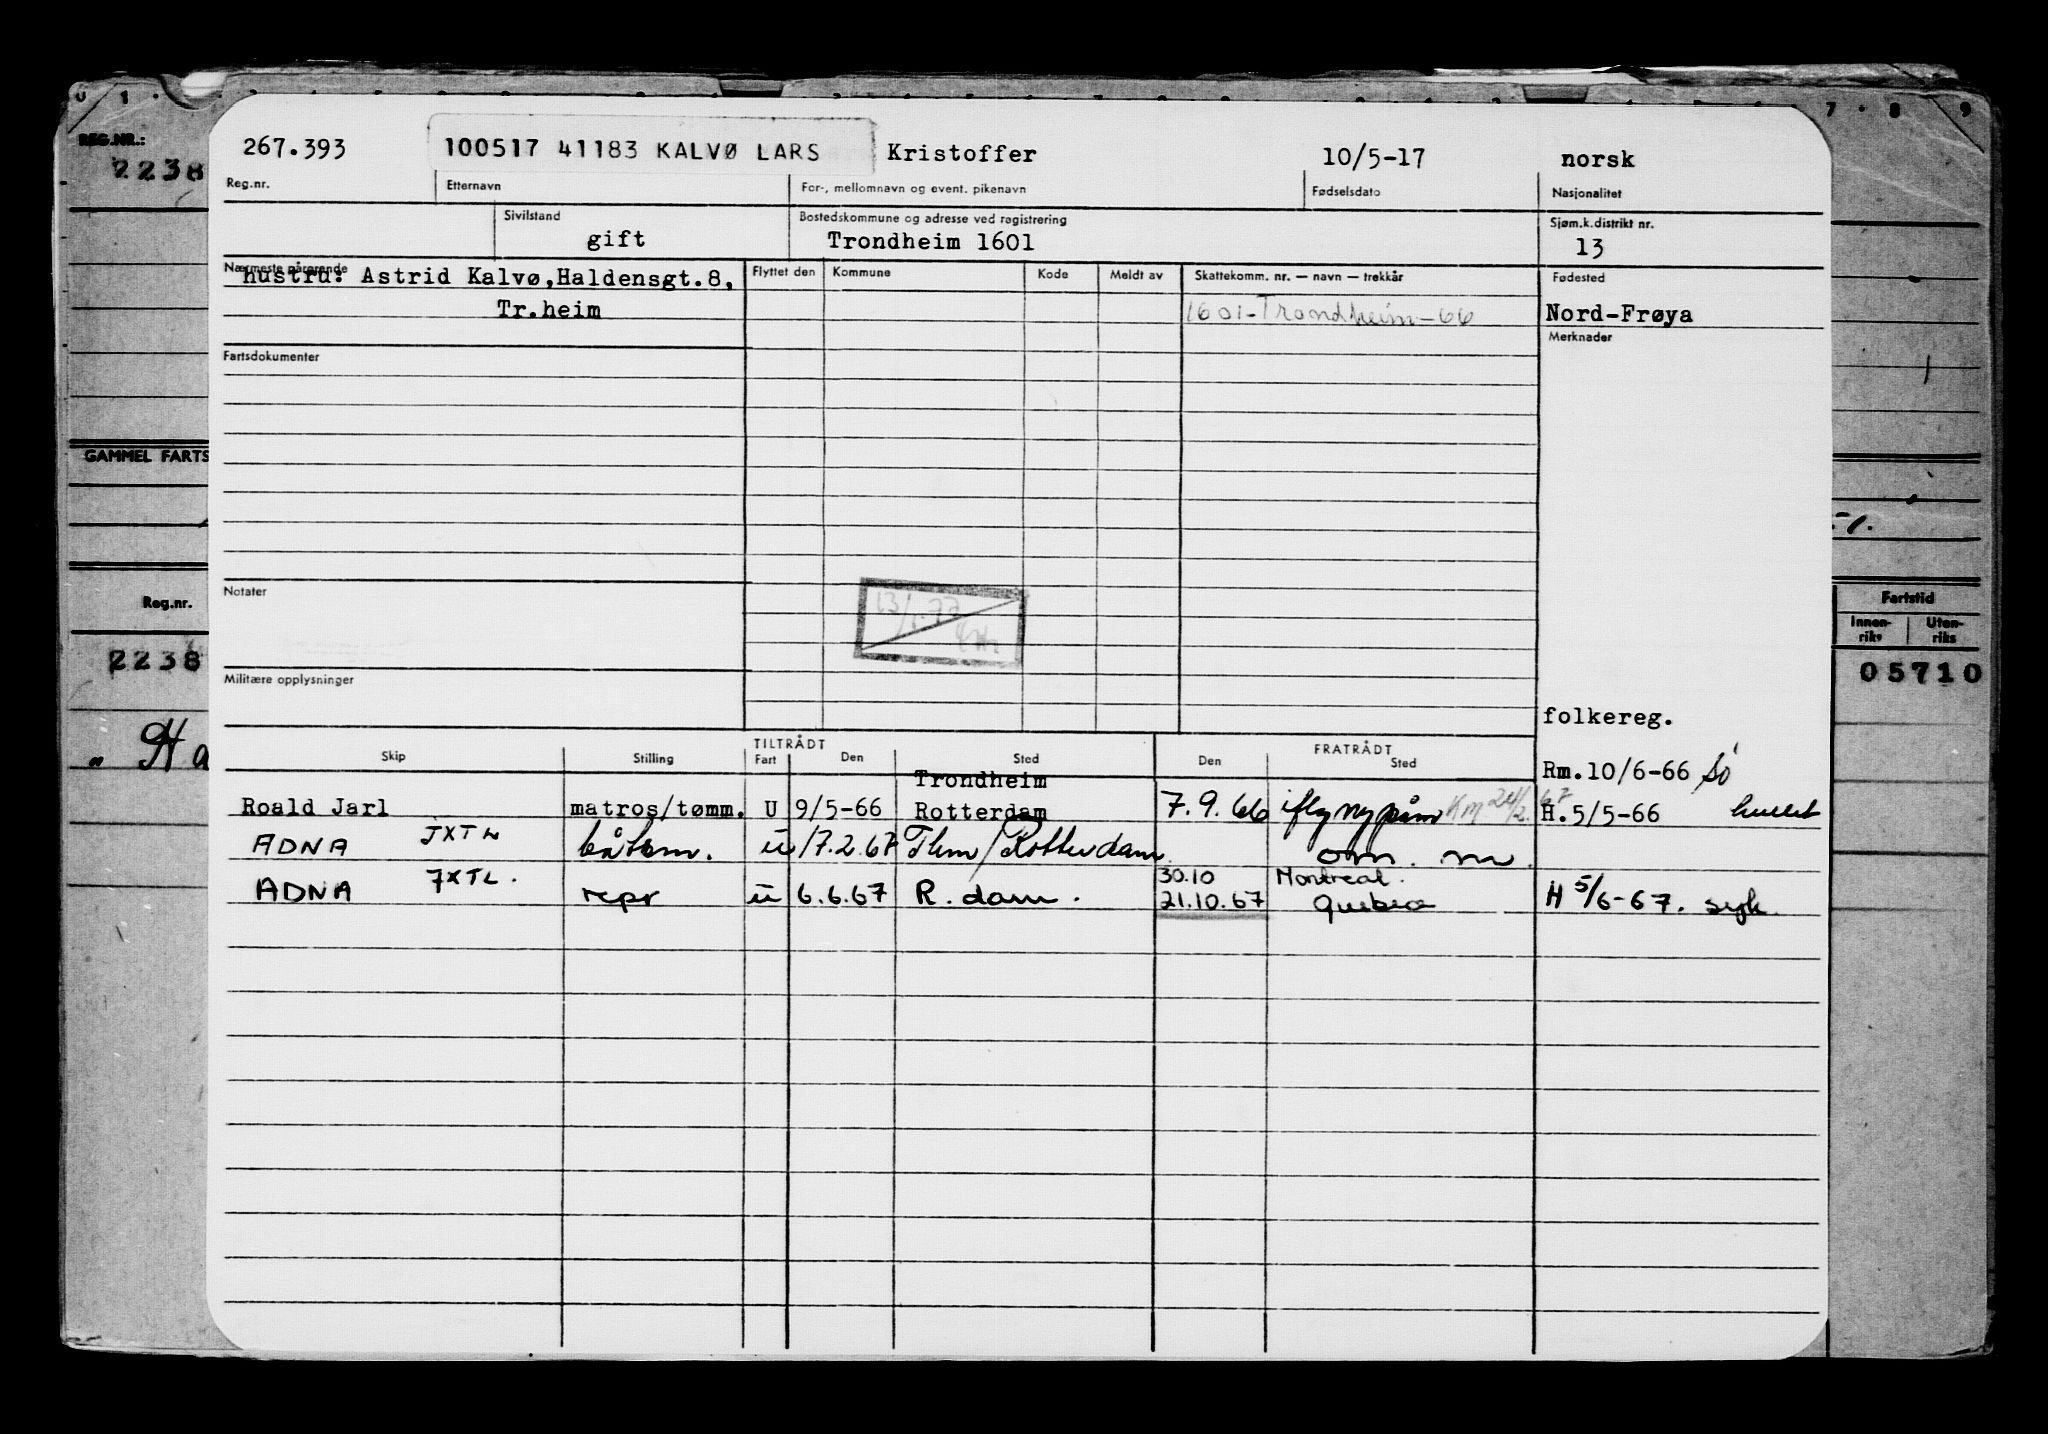 REG.NR.:
2238
267.393 100517 41183 KALVØ LARS Kristoffer 10/5-17 norsk
Reg.nr. Etternavn For-, mellomnavn og event. pikenavn Fødselsdato Nasjonalitet
Sivilstand Bostedskommune og adresse ved registrering Sjøm.k.distrikt nr.
gift Trondheim 1601 13
Nærmeste pårørende Flyttet den Kommune Kode Meldt av Skattekomm. nr. — navn — trekkår Fødested
hustru: Astrid Kalvø,Haldensgt.8,
Tr.heim 1601-Trondheim-66 Nord-Frøya
Merknader
Fartsdokumenter
GAMMEL FARTS
Notater
Reg.nr. Fartstid
Innen-riks Uten-riks
2238 05710
Militære opplysninger
folkereg.
TILTRÅDT FRATRÅDT
Skip Stilling Fart Den Sted Den Sted
Rm.10/6-66
Trondheim
Roald Jarl matros/tømm. U 9/5-66 Rotterdam 7.9.66 H.5/5-66
ADNA JXTL båtsm. u 17.2.67 Thm/Rotterdam
om. m.
ADNA JXTL. repr u 6.6.67 R.dam. 30.10 Montreal.
21.10.67 Quebec H 5/6-67. syk.